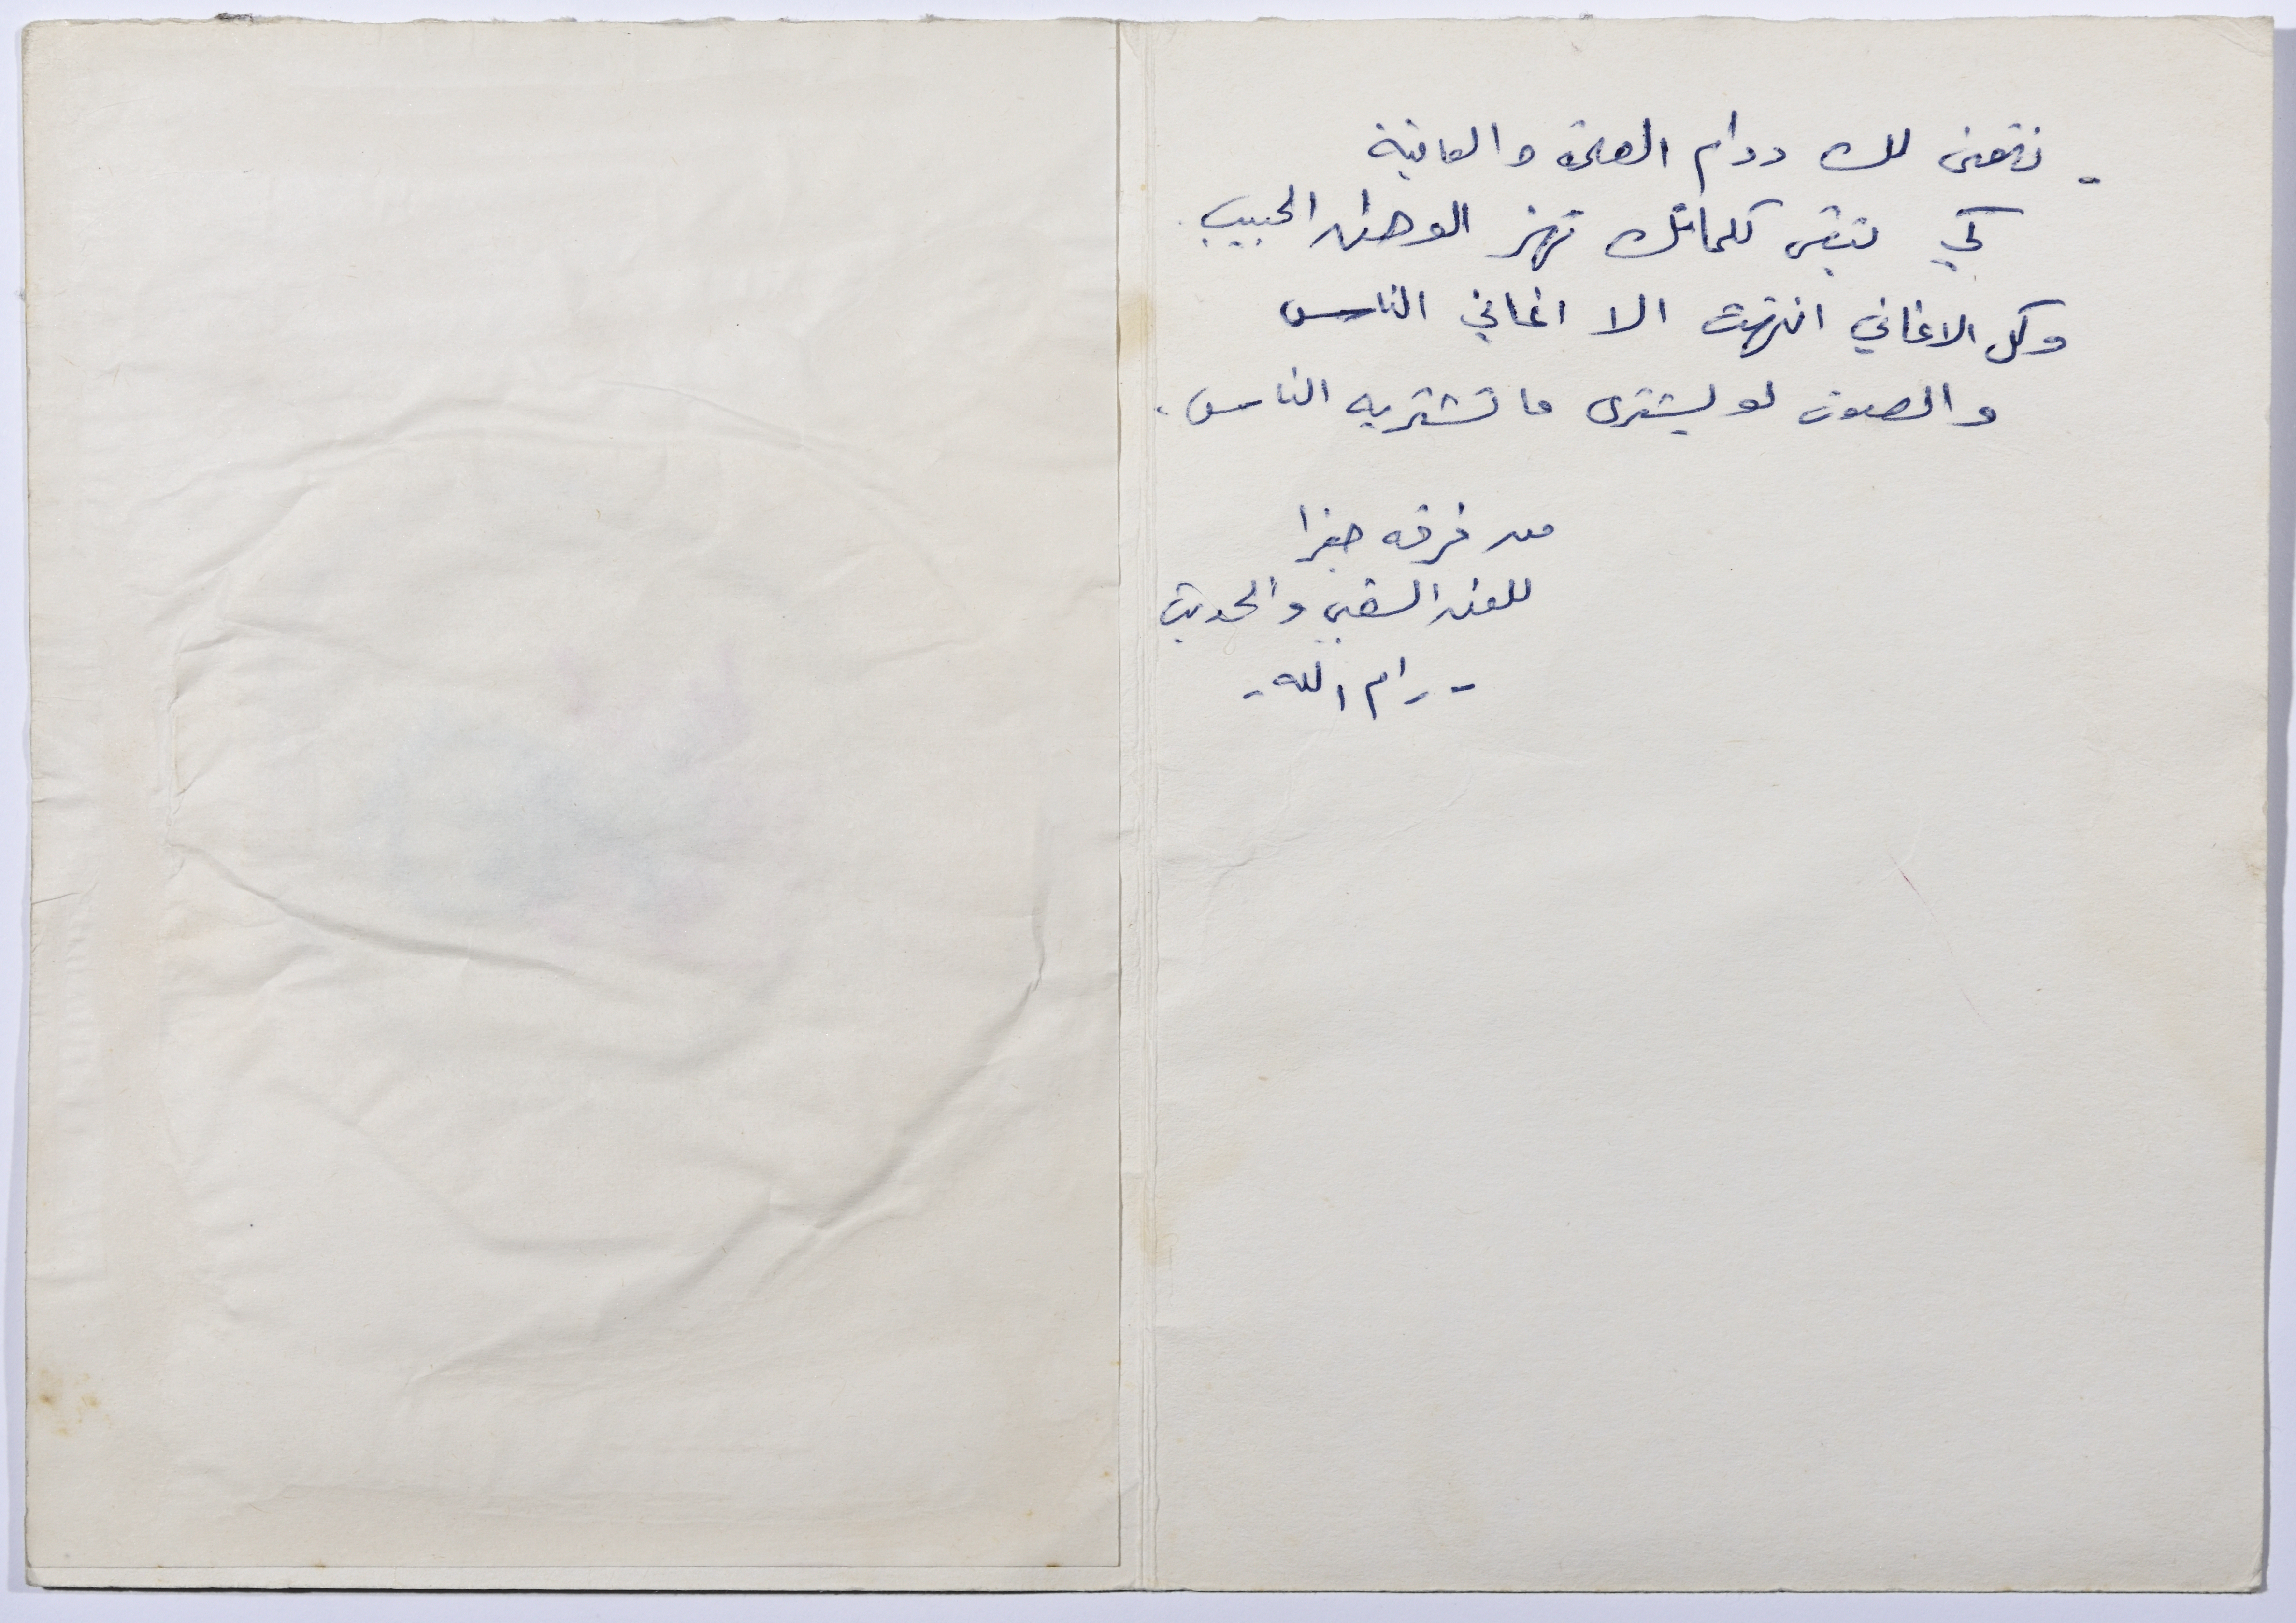 - نتمنى لك دوام الصحة والعافية
كي تبقى كلماتك تهز الوطن الحبيب.
وكل الاغاني انتهت الا اغاني الناس
والصوت لو يشترى ما تشتريه الناس.
من فرقه جفرا
للفن الشعبي والحديث
- رام الله -